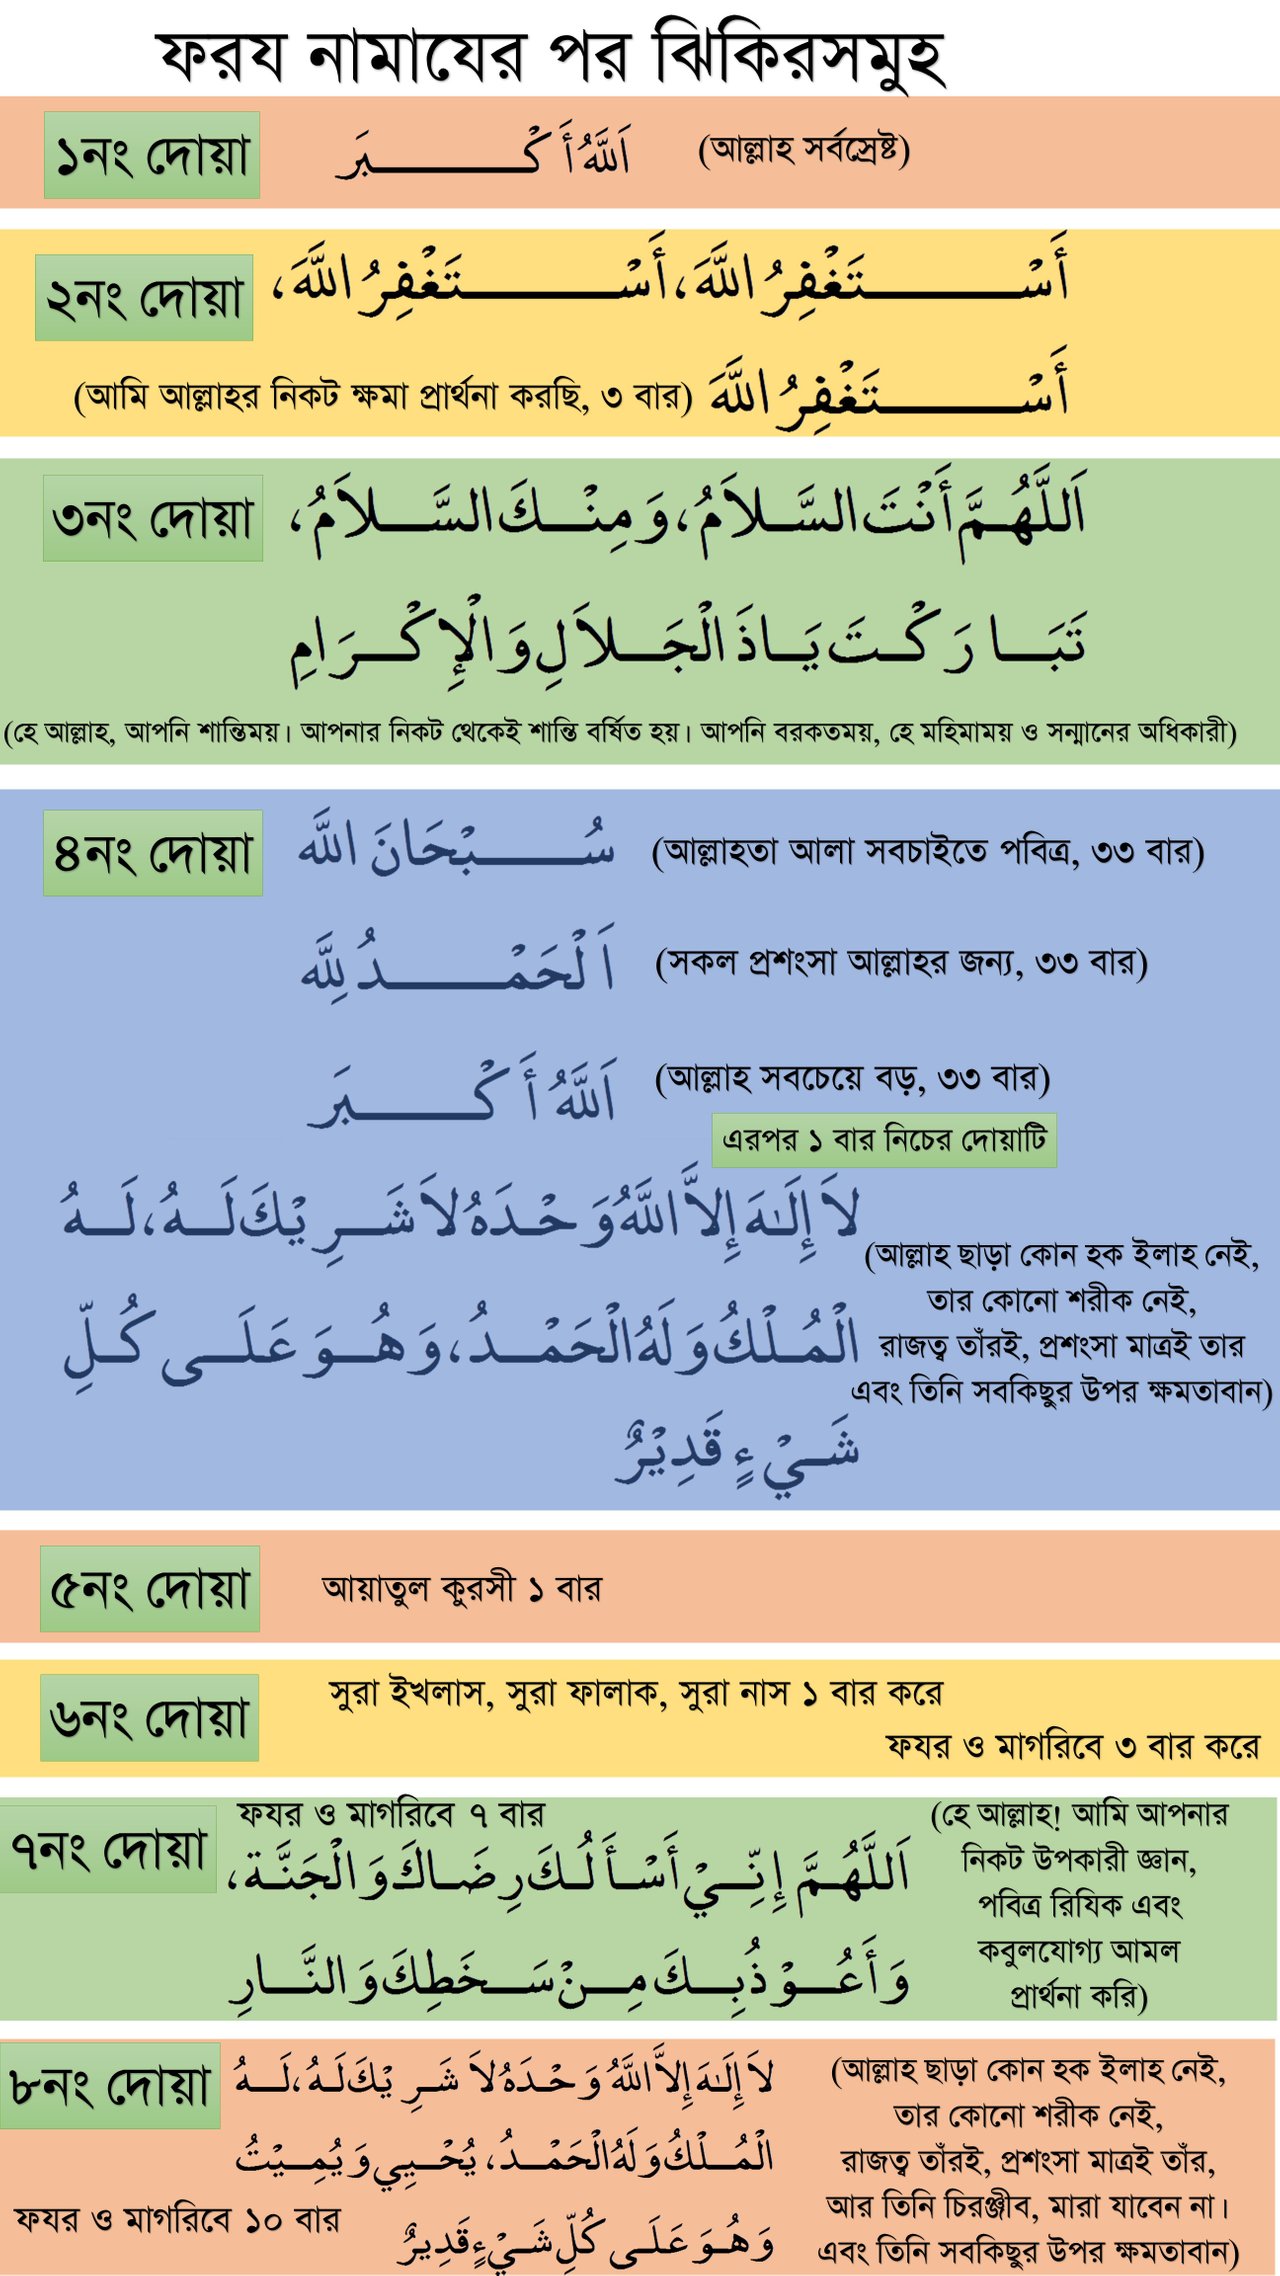 ফরয নামাযের পর ঝিকিরসমুহ
১নং দোয়া
اَللَّهُ أَكْبَرَ
(আল্লাহ সর্বস্রেষ্ট)
২নং দোয়া
أَسْتَغْفِرُ اللَّهَ، أَسْتَغْفِرُ اللَّهَ،
أَسْتَغْفِرُ اللَّهَ
(আমি আল্লাহর নিকট ক্ষমা প্রার্থনা করছি, ৩ বার)
৩নং দোয়া
اَللَّهُمَّ أَنْتَ السَّلاَمُ، وَمِنْكَ السَّلاَمُ،
تَبَارَكْتَ يَاذَ الْجَلاَلِ وَالْإِكْرَامِ
(হে আল্লাহ, আপনি শান্তিময়। আপনার নিকট থেকেই শান্তি বর্ষিত হয়। আপনি বরকতময়, হে মহিমাময় ও সন্মানের অধিকারী)
৪নং দোয়া
سُبْحَانَ اللَّه
(আল্লাহতা আলা সবচাইতে পবিত্র, ৩৩ বার)
اَلْحَمْدُ لِلَّه
(সকল প্রশংসা আল্লাহর জন্য, ৩৩ বার)
اَللَّهُ أَكْبَرَ
(আল্লাহ সবচেয়ে বড়, ৩৩ বার)
এরপর ১ বার নিচের দোয়াটি
لاَ إِلَهَ إِلاَّ اللَّهُ وَحْدَهُ لاَ شَرِيْكَ لَهُ، لَهُ
الْمُلْكُ وَلَهُ الْحَمْدُ، وَهُوَ عَلَى كُلِّ
شَيْءٍ قَدِيْرٌ
(আল্লাহ ছাড়া কোন হক ইলাহ নেই,
তার কোনো শরীক নেই,
রাজত্ব তাঁরই, প্রশংসা মাত্রই তার
এবং তিনি সবকিছুর উপর ক্ষমতাবান)
৫নং দোয়া
আয়াতুল কুরসী ১ বার
৬নং দোয়া
সুরা ইখলাস, সুরা ফালাক, সুরা নাস ১ বার করে
ফযর ও মাগরিবে ৩ বার করে
৭নং দোয়া
ফযর ও মাগরিবে ৭ বার
اَللَّهُمَّ إِنِّيْ أَسْأَلُكَ رِضَاكَ وَالْجَنَّة،
وَأَعُوْذُبِكَ مِنْ سَخَطِكَ وَالنَّارِ
(হে আল্লাহ! আমি আপনার
নিকট উপকারী জ্ঞান,
পবিত্র রিযিক এবং
কবুলযোগ্য আমল
প্রার্থনা করি)
৮নং দোয়া
لاَ إِلَهَ إِلاَّ اللَّهُ وَحْدَهُ لاَ شَرِيْكَ لَهُ، لَهُ
الْمُلْكُ وَلَهُ الْحَمْدُ، يُحْيِي وَيُمِيْتُ
وَهُوَ عَلَى كُلِّ شَيْءٍ قَدِيرٌ
ফযর ও মাগরিবে ১০ বার
(আল্লাহ ছাড়া কোন হক ইলাহ নেই,
তার কোনো শরীক নেই,
রাজত্ব তাঁরই, প্রশংসা মাত্রই তাঁর,
আর তিনি চিরঞ্জীব, মারা যাবেন না।
এবং তিনি সবকিছুর উপর ক্ষমতাবান)